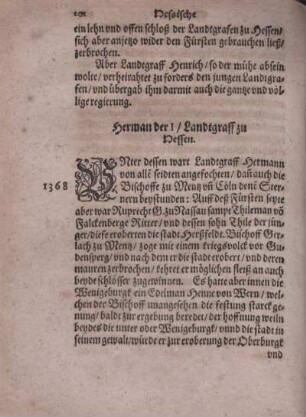 Hessische
ein lehn und offen schloß der Landtgrafen zu Hessen/
sich aber anjetzo wider den Fürsten gebrauchen ließ/
zerbrochen.
Aber Landtgraff Henrich/ so der mühe absein
wolte/ verheirahtet zu forders den jungen Landtgra-
fen/ und übergab ihm darmit auch die gantze und völ-
lige regierung.
Herman der I/ Landtgraff zu
Hessen.
UNter dessen wart Landtgraff Hermann
von allē seidten angefochten/ dañ auch die
1368
Bischoffe zu Mentz uñ Cöln denē Ster-
nern beystunden: Auff deß Fürsten seyte
aber war Ruprecht G. zu Nassau sampt Thileman võ
Falckenberge Ritter/ und dessen sohn Thile der jün-
ger/ diese eroberten die stadt Herßfelde. Bischoff Ger-
lach zu Mentz/ zoge mit einem kriegsvolck vor Gu-
densperg/ und nach dem er die stadt erobert/ und deren
mauren zerbrochen/ kehret er möglichen fleiß an auch
beyde schlösser zugewinnen. Es hatte aber innen die
Wenigeburgk ein Edelman Henne von Wern/ wel-
chen der Bischoff unangesehen die festung starck ge-
nung/ baldt zur ergebung beredet/ der hoffnung weiln
beydes die unter oder Wenigeburgk/ unnd die stadt in
seinem gewalt/ würde er zur eroberung der Oberburgk
und